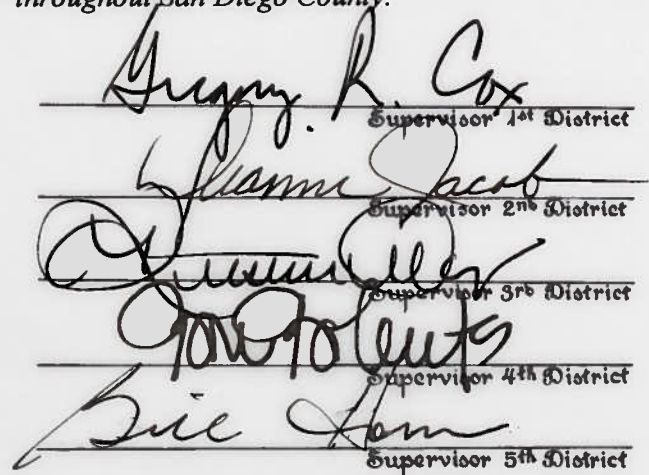 throughout San Diego County.
Gregory R. Cox
Supervisor 1st District
Dianne Jacob
Supervisor 2nd District
Supervisor 3rd District
Ron Roberts
Supervisor 4th District
Bill Horn
Supervisor 5th District